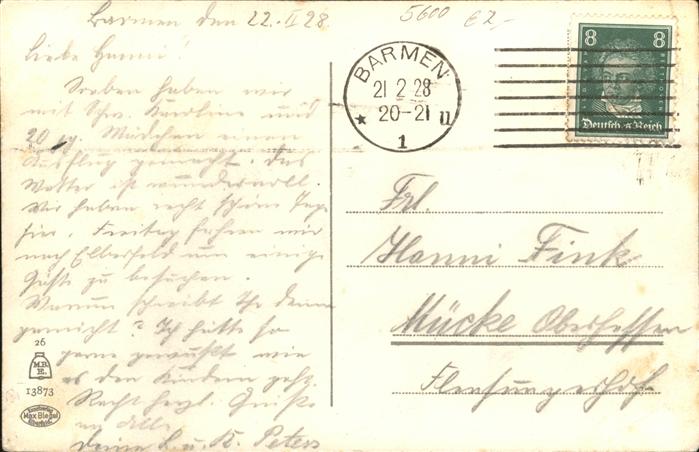 Barmen den 22. II 28.
5600 €2,-
Liebe Hanni!
Soeben haben wir
mit Schw. Karoline und
20 jg. Mädchen einen
Ausflug gemacht. Das
Wetter ist wundervoll.
Wir haben recht schöne Tage
hier. Freitag fahren wir
nach Elberfeld um einige
Gäste zu besuchen.
Warum schreibt Ihr denn
garnicht? Ich hätte so
gerne gewußt wie
es den Kindern geht.
Recht herzl. Grüße
an Alle
Deine L. u. K. Peters
BARMEN
21 2 28
20-21 II
* 1
8 8
Deutsches Reich
Frl.
Hanni Fink
Mücke Oberhessen
Flensungerhof
26
M.B.
13873
Max Biegel
Elberfeld